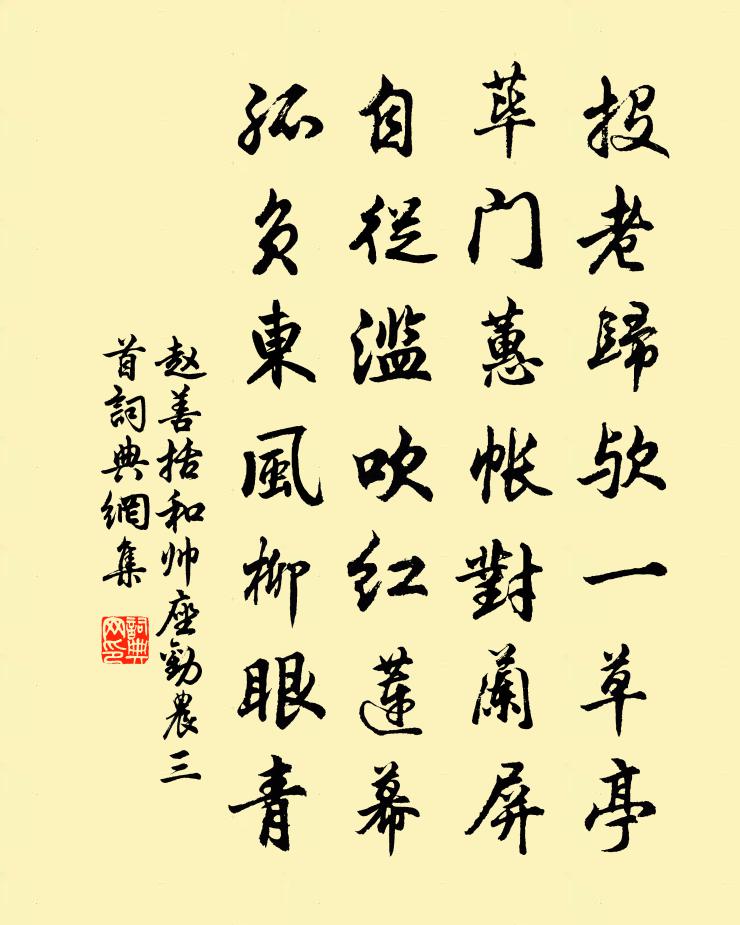 投老歸歟一草亭
荜門蕙帐對蘭屏
自從滥吹红蓮幕
孤负東風柳眼青
赵善括和帅座勸農三
首詞典網集
詞典网印